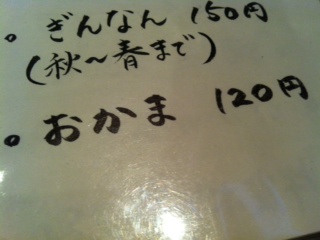 。ぎんなん 150円
(秋〜春まで)
。おかま 120円